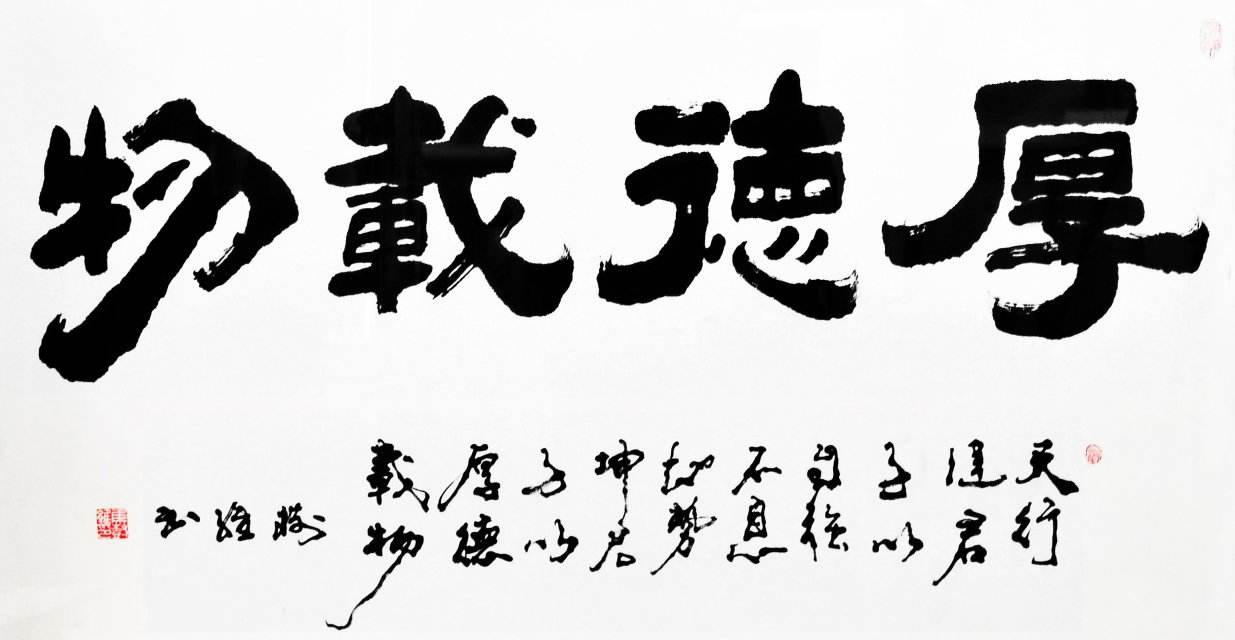 厚德載物
天行
健君
子以
自強
不息
地勢
坤君
子以
厚德
載物
維
书